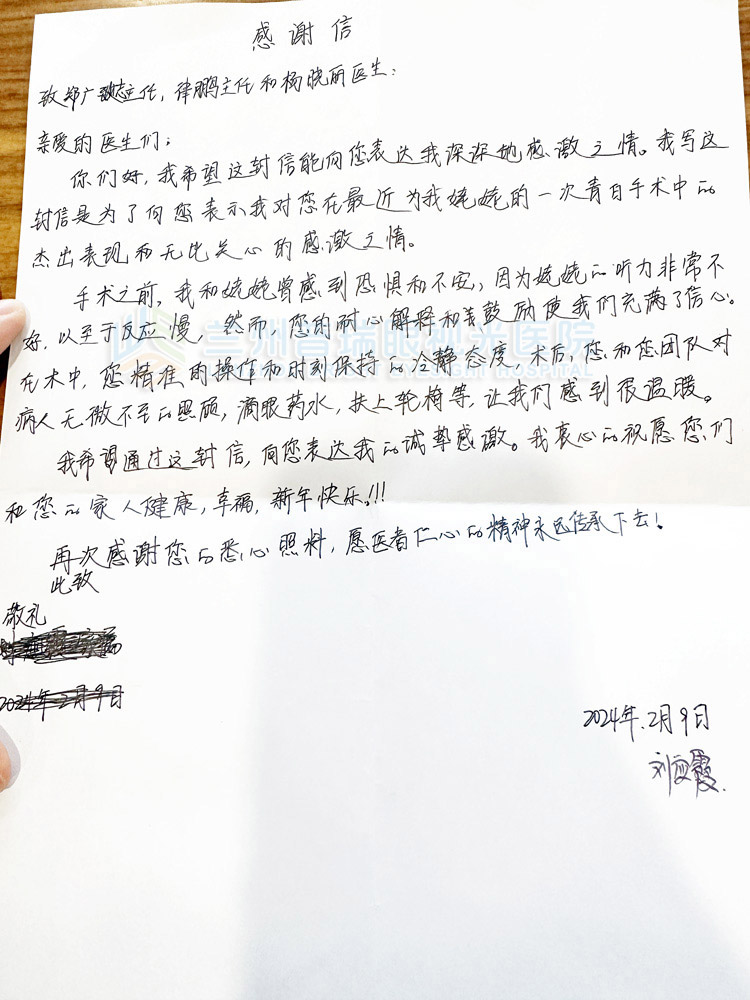 感谢信
致郑广瑛主任,律鹏主任和杨晓丽医生:
亲爱的医生们:
你们好,我希望这封信能向您表达我深深地感激之情。我写这
封信是为了向您表示我对您在最近为我姥姥的一次青白手术中的
杰出表现和无比关心的感激之情。
手术之前,我和姥姥曾感到恐惧和不安,因为姥姥的听力非常不
好,以至于反应慢,然而,您的耐心解释和善鼓励使我们充满了信心。
在术中,您精准的操作和时刻保持的冷静态度。术后,您和您团队对
病人无微不至的照顾,滴眼药水,扶上轮椅等,让我们感到很温暖。
我希望通过这封信,向您表达我的诚挚感激。我衷心的祝愿您们
和您的家人健康,幸福,新年快乐!!!
再次感谢您的悉心照料,愿医者仁心的精神永远传承下去!
此致
敬礼
2024年2月9日
2024年.2月9日
刘应霞.
兰州普瑞眼视光医院